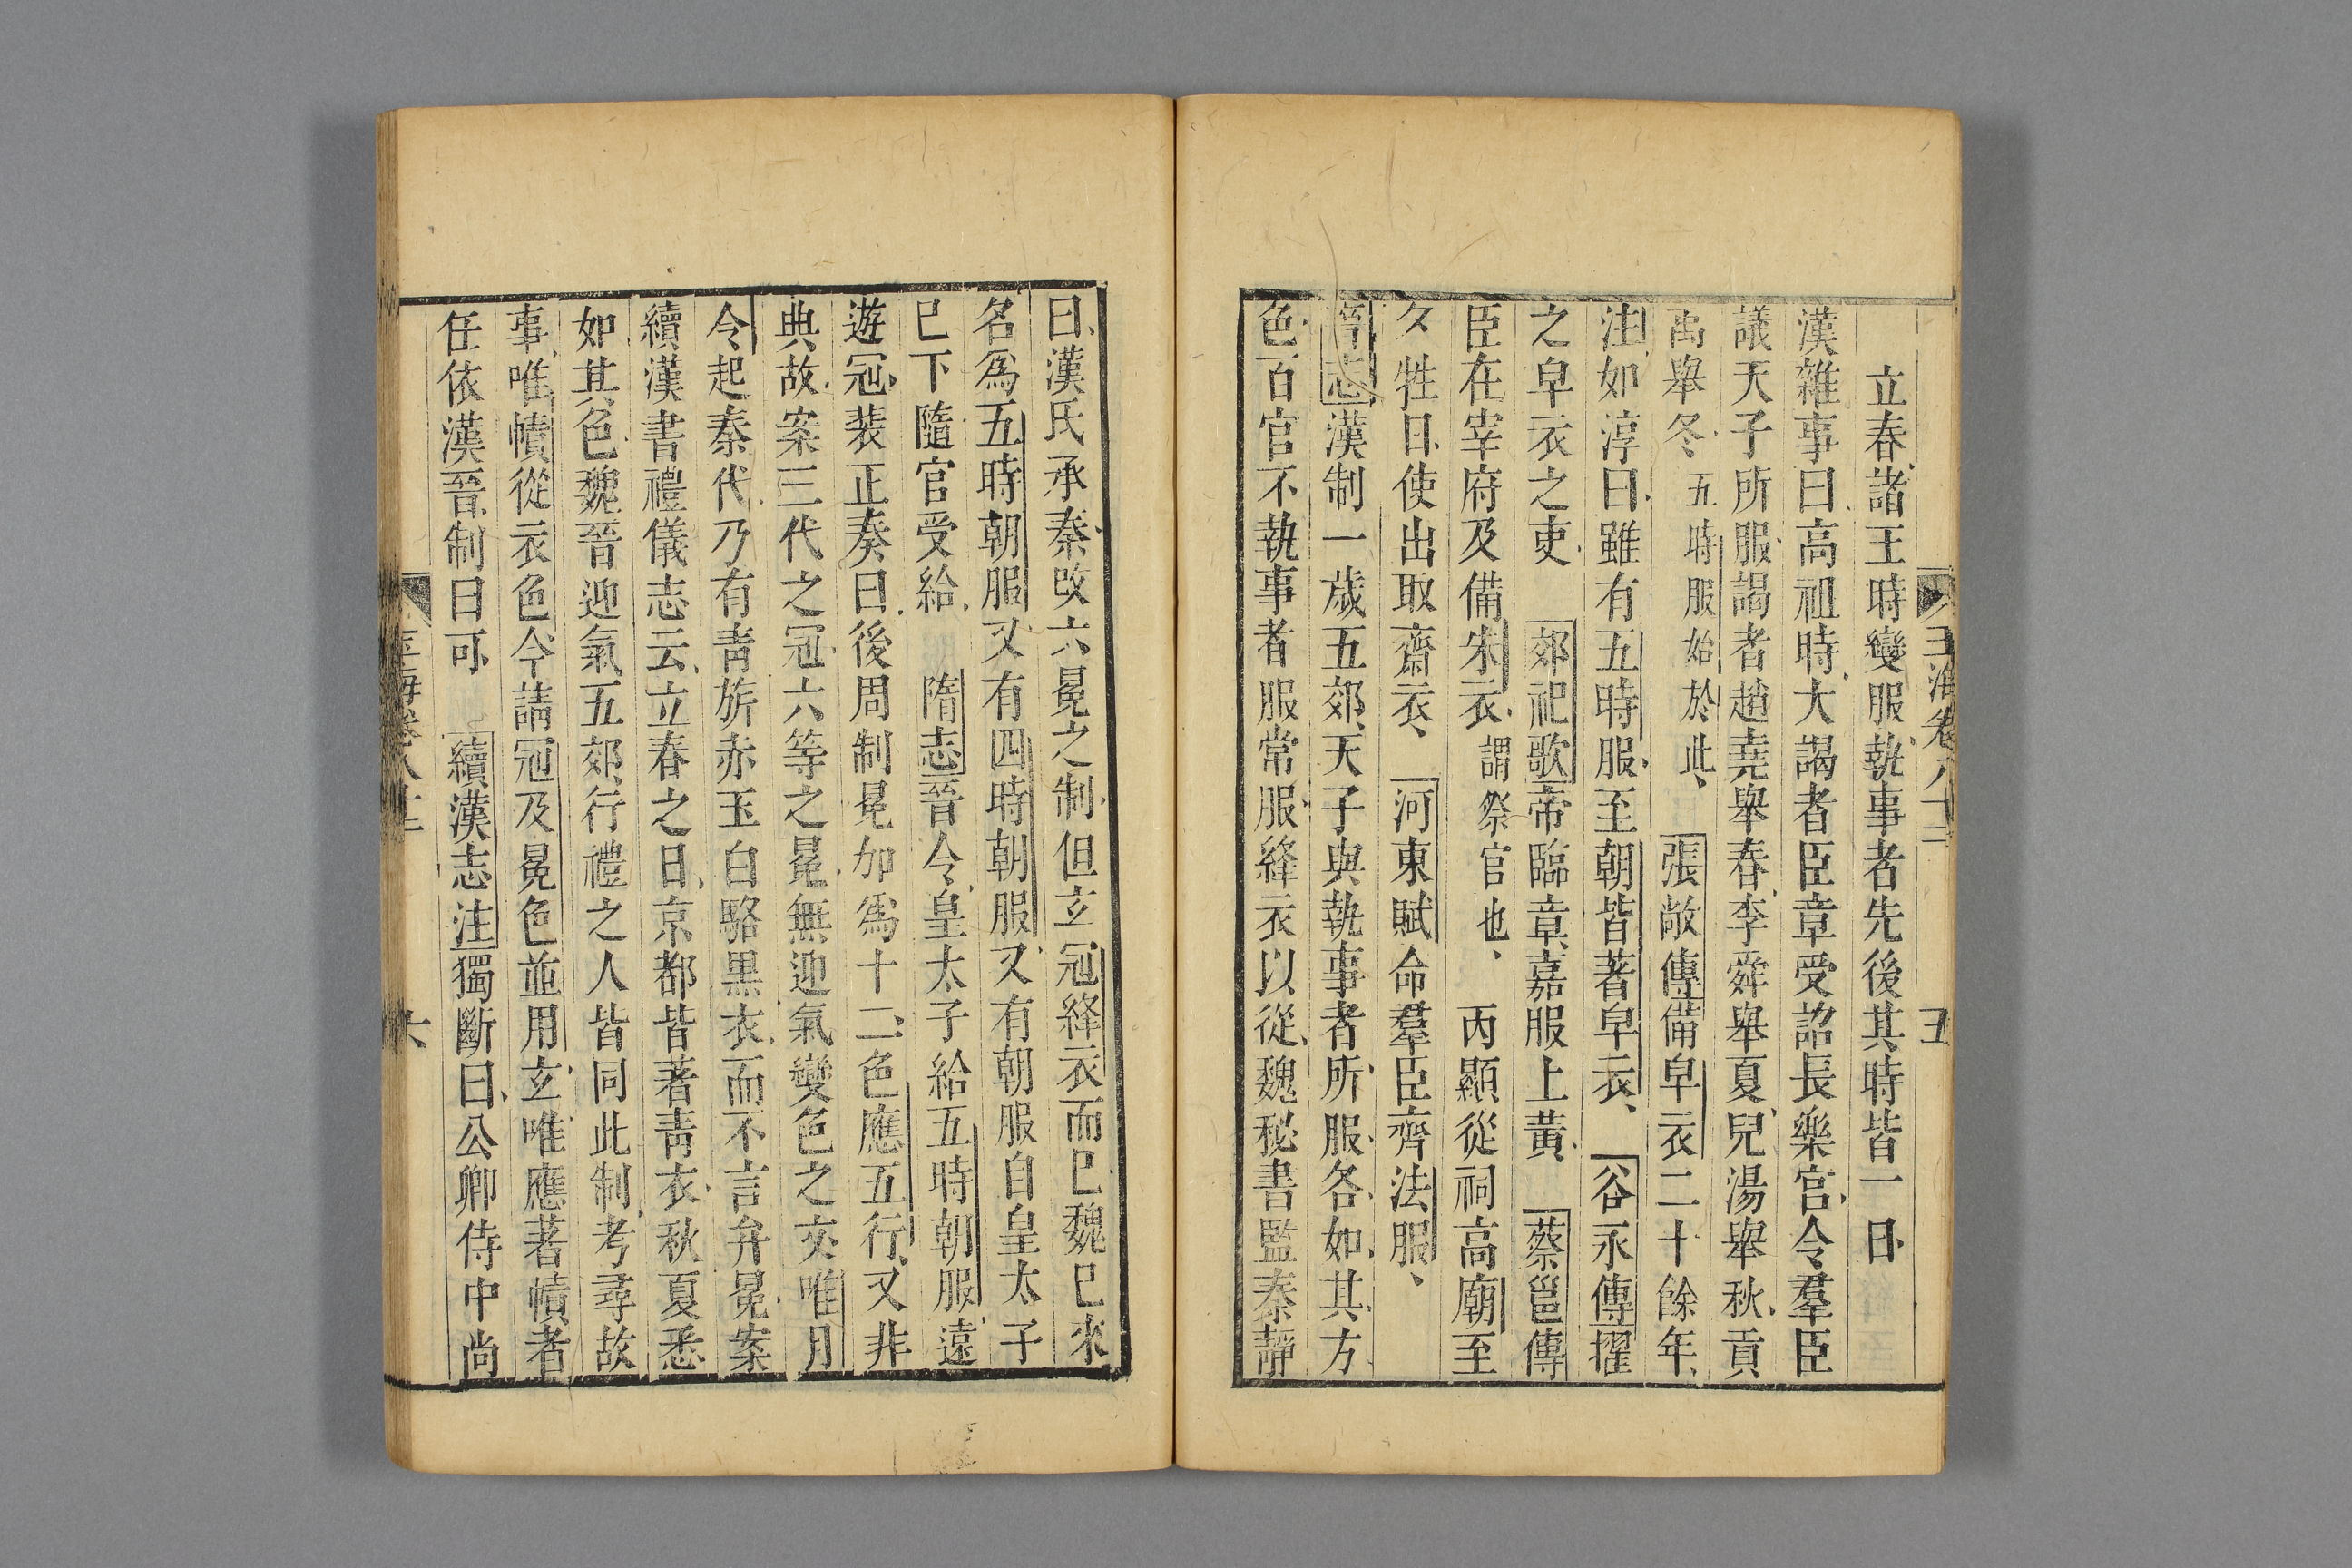 玉海卷八十二 五
立春諸王時變服執事者先後其時皆一日
漢雜事曰高祖時大謁者臣章受詔長樂宮令羣臣
議天子所服謁者趙堯舉春李舜舉夏兒湯舉秋貢
禹舉冬五時服始於此 張敞傳備皁衣二十餘年
注如淳曰雖有五時服至朝皆著皁衣 谷永傳擢
之皁衣之吏 郊祀歌帝臨章嘉服上黃 蔡邕傳
臣在宰府及備朱衣謂祭官也 丙顯從祠高廟至
夕牲日使出取齋衣 河東賦命羣臣齊法服
晉志漢制一歲五郊天子與執事者所服各如其方
色百官不執事者服常服絳衣以從魏秘書監秦靜
曰漢氏承秦改六冕之制但玄冠絳衣而已魏已來
名爲五時朝服又有四時朝服又有朝服自皇太子
已下隨官受給 隋志晉令皇太子給五時朝服遠
遊冠裴正奏曰後周制冕加爲十二色應五行又非
典故案三代之冠六等之冕無迎氣變色之文唯月
令起秦代乃有靑旂赤玉白駱黑衣而不言弁冕案
續漢書禮儀志云立春之日京都皆著靑衣秋夏悉
如其色魏晉迎氣五郊行禮之人皆同此制考尋故
事唯幘從衣色今請冠及冕色並用玄唯應著幘者
任依漢晉制曰可 續漢志注獨斷曰公卿侍中尚
玉海卷八十二 六